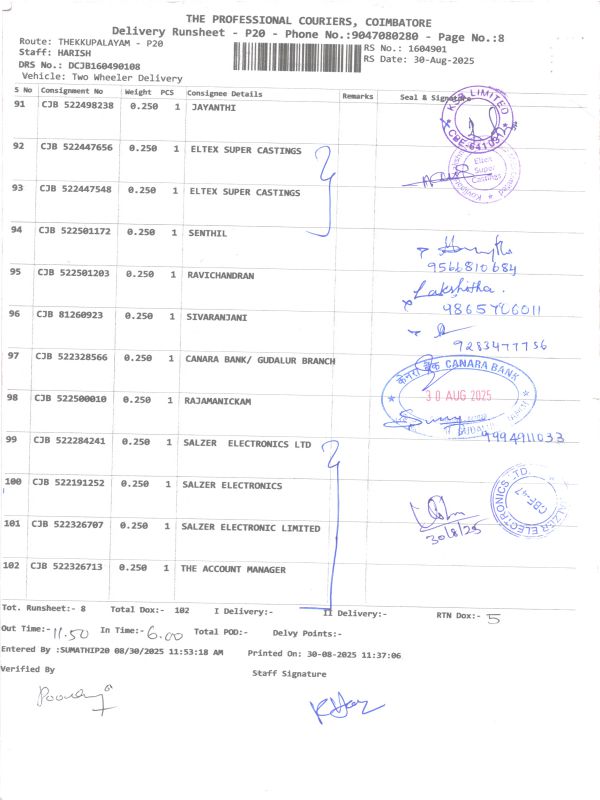 THE PROFESSIONAL COURIERS, COIMBATORE
Delivery Runsheet - P20 - Phone No.:9047080280 - Page No.:8
Route: THEKKUPALAYAM - P20
RS No.: 1604901
Staff: HARISH
RS Date: 30-Aug-2025
DRS No.: DCJB160490108
Vehicle: Two Wheeler Delivery
S No Consignment No Weight PCS Consignee Details Remarks Seal & Signature
91 CJB 522498238 0.250 1 JAYANTHI
LIMITED
CBE-641031
92 CJB 522447656 0.250 1 ELTEX SUPER CASTINGS
Eltex
Super
Castings
93 CJB 522447548 0.250 1 ELTEX SUPER CASTINGS
94 CJB 522501172 0.250 1 SENTHIL
9566810684
95 CJB 522501203 0.250 1 RAVICHANDRAN
Lakshitha.
9865706011
96 CJB 81260923 0.250 1 SIVARANJANI
9283477756
97 CJB 522328566 0.250 1 CANARA BANK/ GUDALUR BRANCH
केनरा बैंक CANARA BANK
30 AUG 2025
98 CJB 522500010 0.250 1 RAJAMANICKAM
9994911033
99 CJB 522284241 0.250 1 SALZER ELECTRONICS LTD
100 CJB 522191252 0.250 1 SALZER ELECTRONICS
SALZER ELECTRONICS LTD.
CBE-47
101 CJB 522326707 0.250 1 SALZER ELECTRONIC LIMITED
30/8/25
102 CJB 522326713 0.250 1 THE ACCOUNT MANAGER
Tot. Runsheet:- 8 Total Dox:- 102 I Delivery:- II Delivery:- RTN Dox:- 5
Out Time:- 11.50 In Time:- 6.00 Total POD:- Delvy Points:-
Entered By :SUMATHIP20 08/30/2025 11:53:18 AM Printed On: 30-08-2025 11:37:06
Verified By
Staff Signature